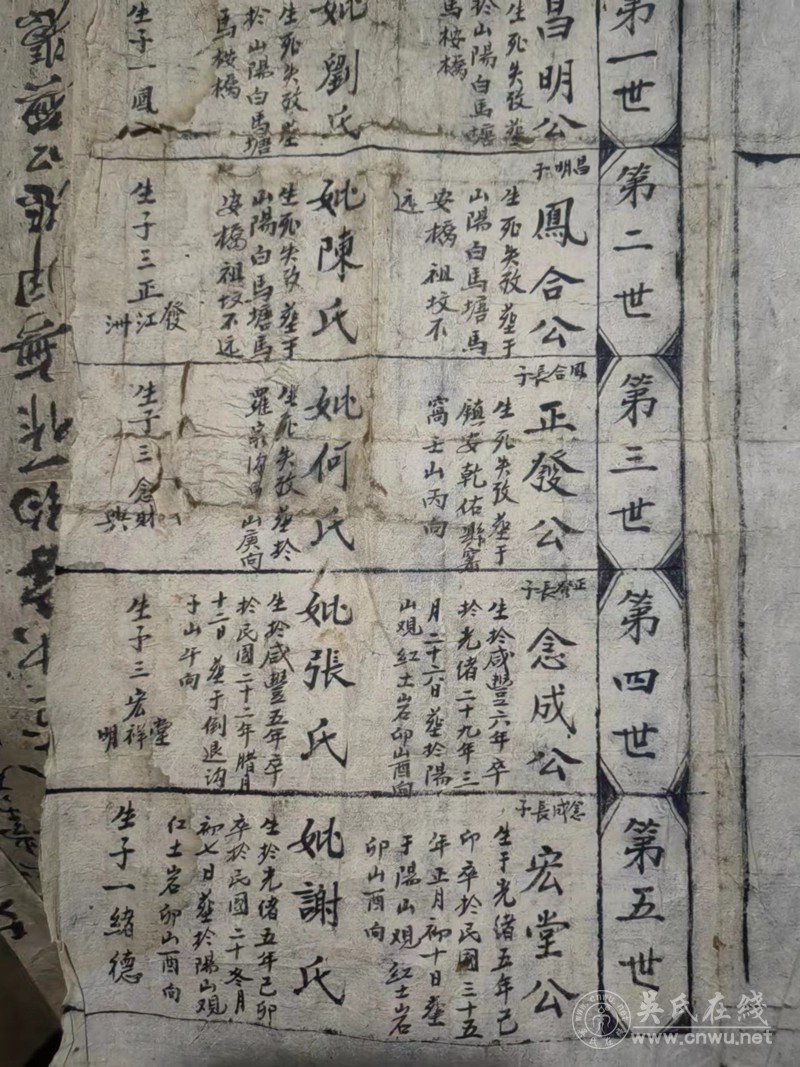 第一世
昌明公
生死失攷塟
於山陽白馬塘
馬桉橋
妣劉氏
生死失攷塟
於山陽白馬塘
馬桉橋
生子一鳳
第二世
昌明子
鳳合公
生死失攷塟于
山陽白馬塘馬
安橋祖坟不
远
妣陳氏
生死失攷塟于
山陽白馬塘馬
安橋祖坟不远
生子三正發
江
洲
第三世
鳳合長子
正發公
生死失攷塟于
鎮安乾佑縣窰
窩壬山丙向
妣何氏
生死失攷塟於
羅家 山庚向
生子三念財
與
第四世
正發長子
念成公
生於咸豐六年卒
於光绪二十九年三
月二十六日塟於陽
山观红土岩卯山酉向
妣張氏
生於咸豐五年卒
於民國二十二年腊月
十二日塟于倒退沟
子山午向
生子三宏堂
祥
明
第五世
念成長子
宏堂公
生于光绪五年己
卯卒於民國三十五
年正月初十日塟
于陽山观红土岩
卯山酉向
妣謝氏
生於光绪五年己卯
卒於民國二十冬月
初七日塟於陽山观
红土岩卯山酉向
生子一緒德
吴氏在线
www.cnwu.net